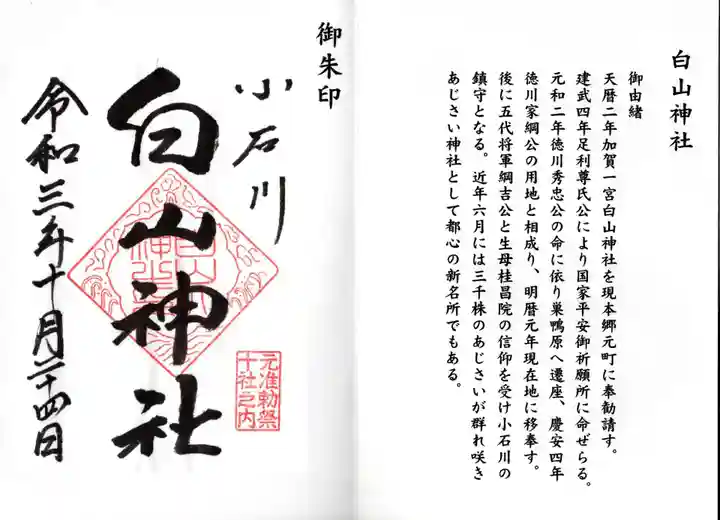 白山神社
御由緒
天暦二年加賀一宮白山神社を現本郷元町に奉勧請す。
建武四年足利尊氏公により国家平安御祈願所に命ぜらる。
元和二年徳川秀忠公の命に依り巣鴨原へ遷座、慶安四年
徳川家綱公の用地と相成り、明暦元年現在地に移奉す。
後に五代将軍綱吉公と生母桂昌院の信仰を受け小石川の
鎮守となる。近年六月には三千株のあじさいが群れ咲き
あじさい神社として都心の新名所でもある。
御朱印
小石川
白山神社
元准勅祭
十社之内
令和三年十月二十四日